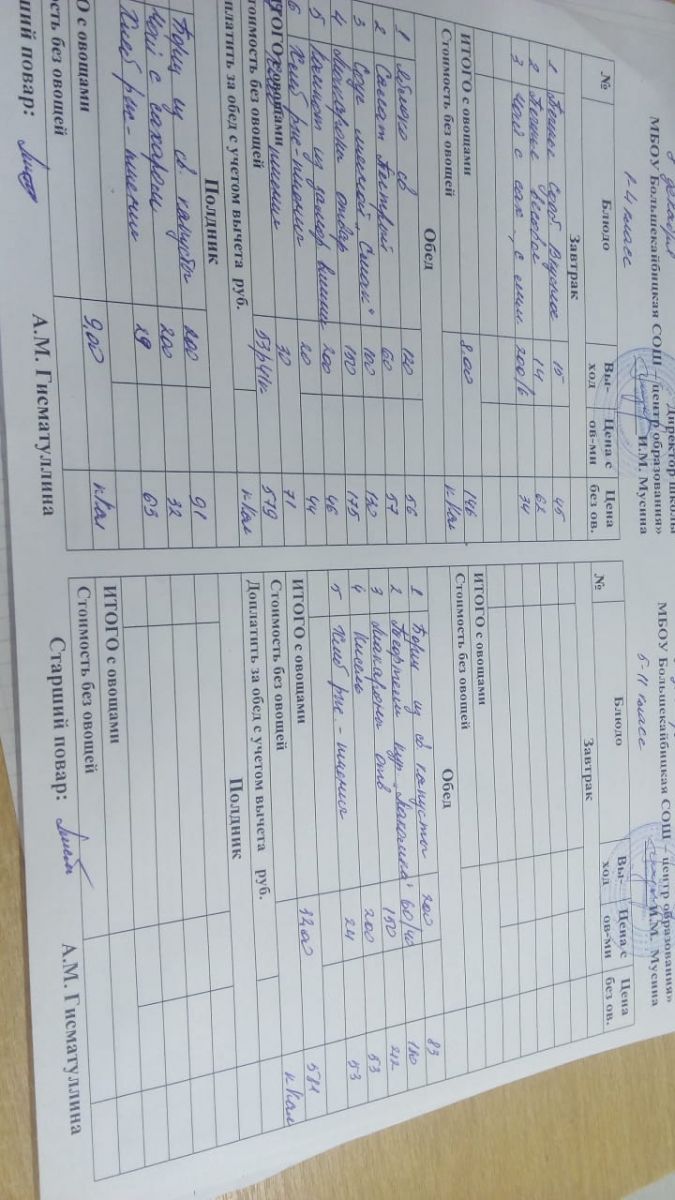 Директор школы
МБОУ Большекайбицкая СОШ – центр образования»
И.М. Мусина
1-4 класс
№ Блюдо Вы-ход Цена с ов-ми Цена без ов.
Завтрак
1 Печенье 15 45
2 Печенье 14 62
3 Чай с сах., с 200/6 34
ИТОГО с овощами 8.00 146
Стоимость без овощей ккал
Обед
1 Яблоко св 120 56
2 Салат 60 57
3 Соус мясной 100 130
4 Макароны отвар 150 175
5 Компот из 200 46
Хлеб рже-пшенич 20 44
6 30 71
ИТОГО с овощами 53р41к 579
Стоимость без овощей ккал
платить за обед с учетом вычета руб.
Полдник
Борщ из св. капусты 200 91
Чай с сахаром 200 32
Хлеб рже-пшенич 29 63
О с овощами 9,00 ккал
сть без овощей
ший повар: А.М. Гисматуллина
МБОУ Большекайбицкая СОШ – центр образования»
И.М. Мусина
5-11 класс
№ Блюдо Вы-ход Цена с ов-ми Цена без ов.
Завтрак
ИТОГО с овощами
Стоимость без овощей
Обед
1 Борщ из св капусты 200 83
2 кур. 60/40 180
3 Макароны отв 150 212
4 Кисель 200 53
5 Хлеб рже-пшенич 24 53
ИТОГО с овощами 32,00 581
Стоимость без овощей ккал
Доплатить за обед с учетом вычета руб.
Полдник
ИТОГО с овощами
Стоимость без овощей
Старший повар: А.М. Гисматуллина